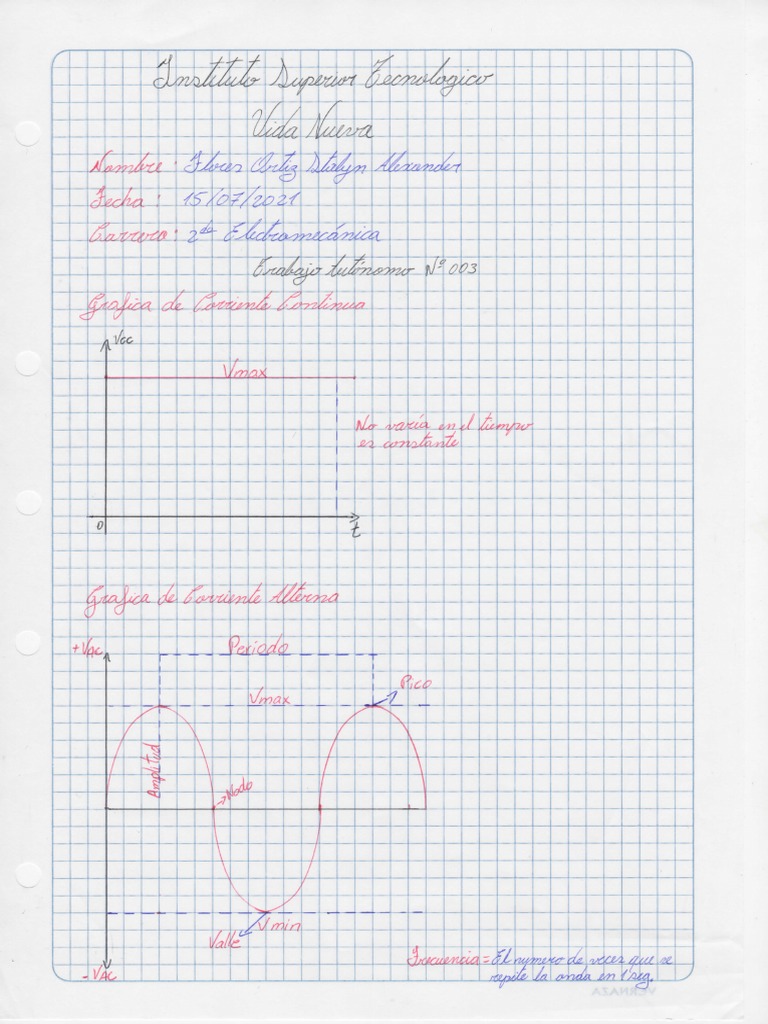 Instituto Superior Tecnologico
Vida Nueva
Nombre: Flores Ortiz Stalyn Alexander
Fecha: 15/07/2021
Carrera: 2do Electromecánica
Trabajo Autónomo Nº 003
Grafica de Corriente Continua
Vcc
Vmax
No varía en el tiempo
es constante
0
t
Grafica de Corriente Alterna
+VAC
Periodo
Pico
Vmax
Amplitud
Nodo
Vmin
Valle
-VAC
Frecuencia = El numero de veces que se
repite la onda en 1 seg.
VERNAZA